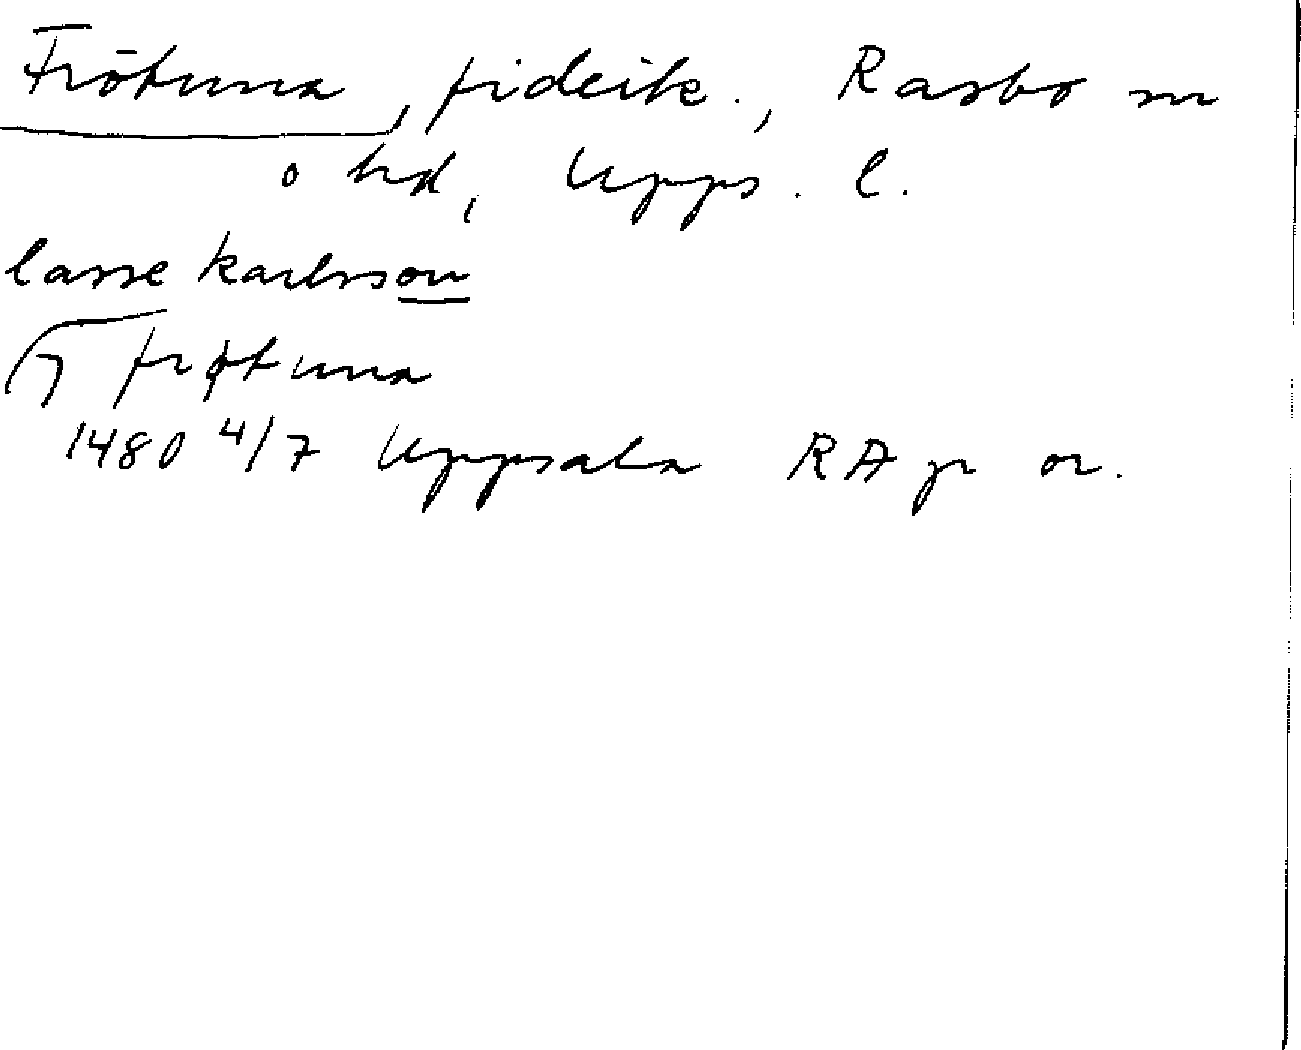 Frötuna, fideik., Rasbo sn
o hd, Upps. l.
lasse karlsson
ј frøtuna
1480 4/7 Uppsala RA p or.